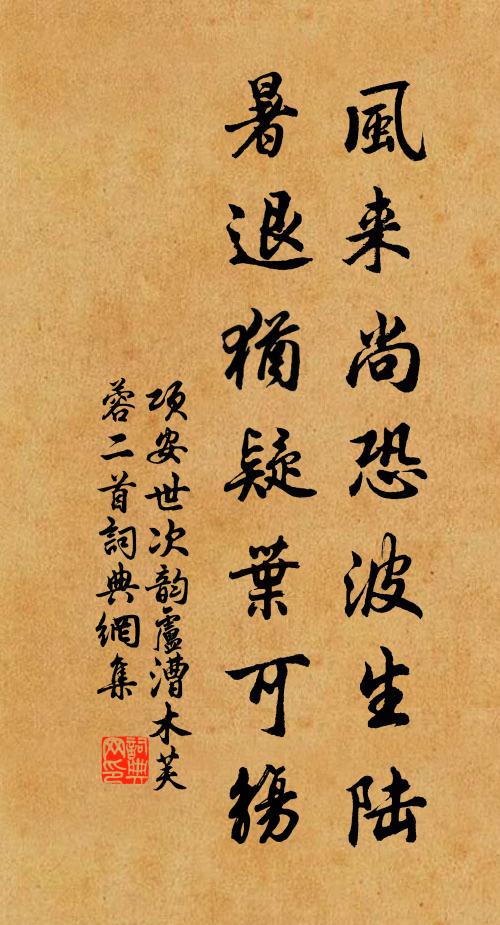 風来尚恐波生陆
暑退猶疑葉可觴
項安世次韵盧漕木芙
蓉二首詞典網集
詞典
网印